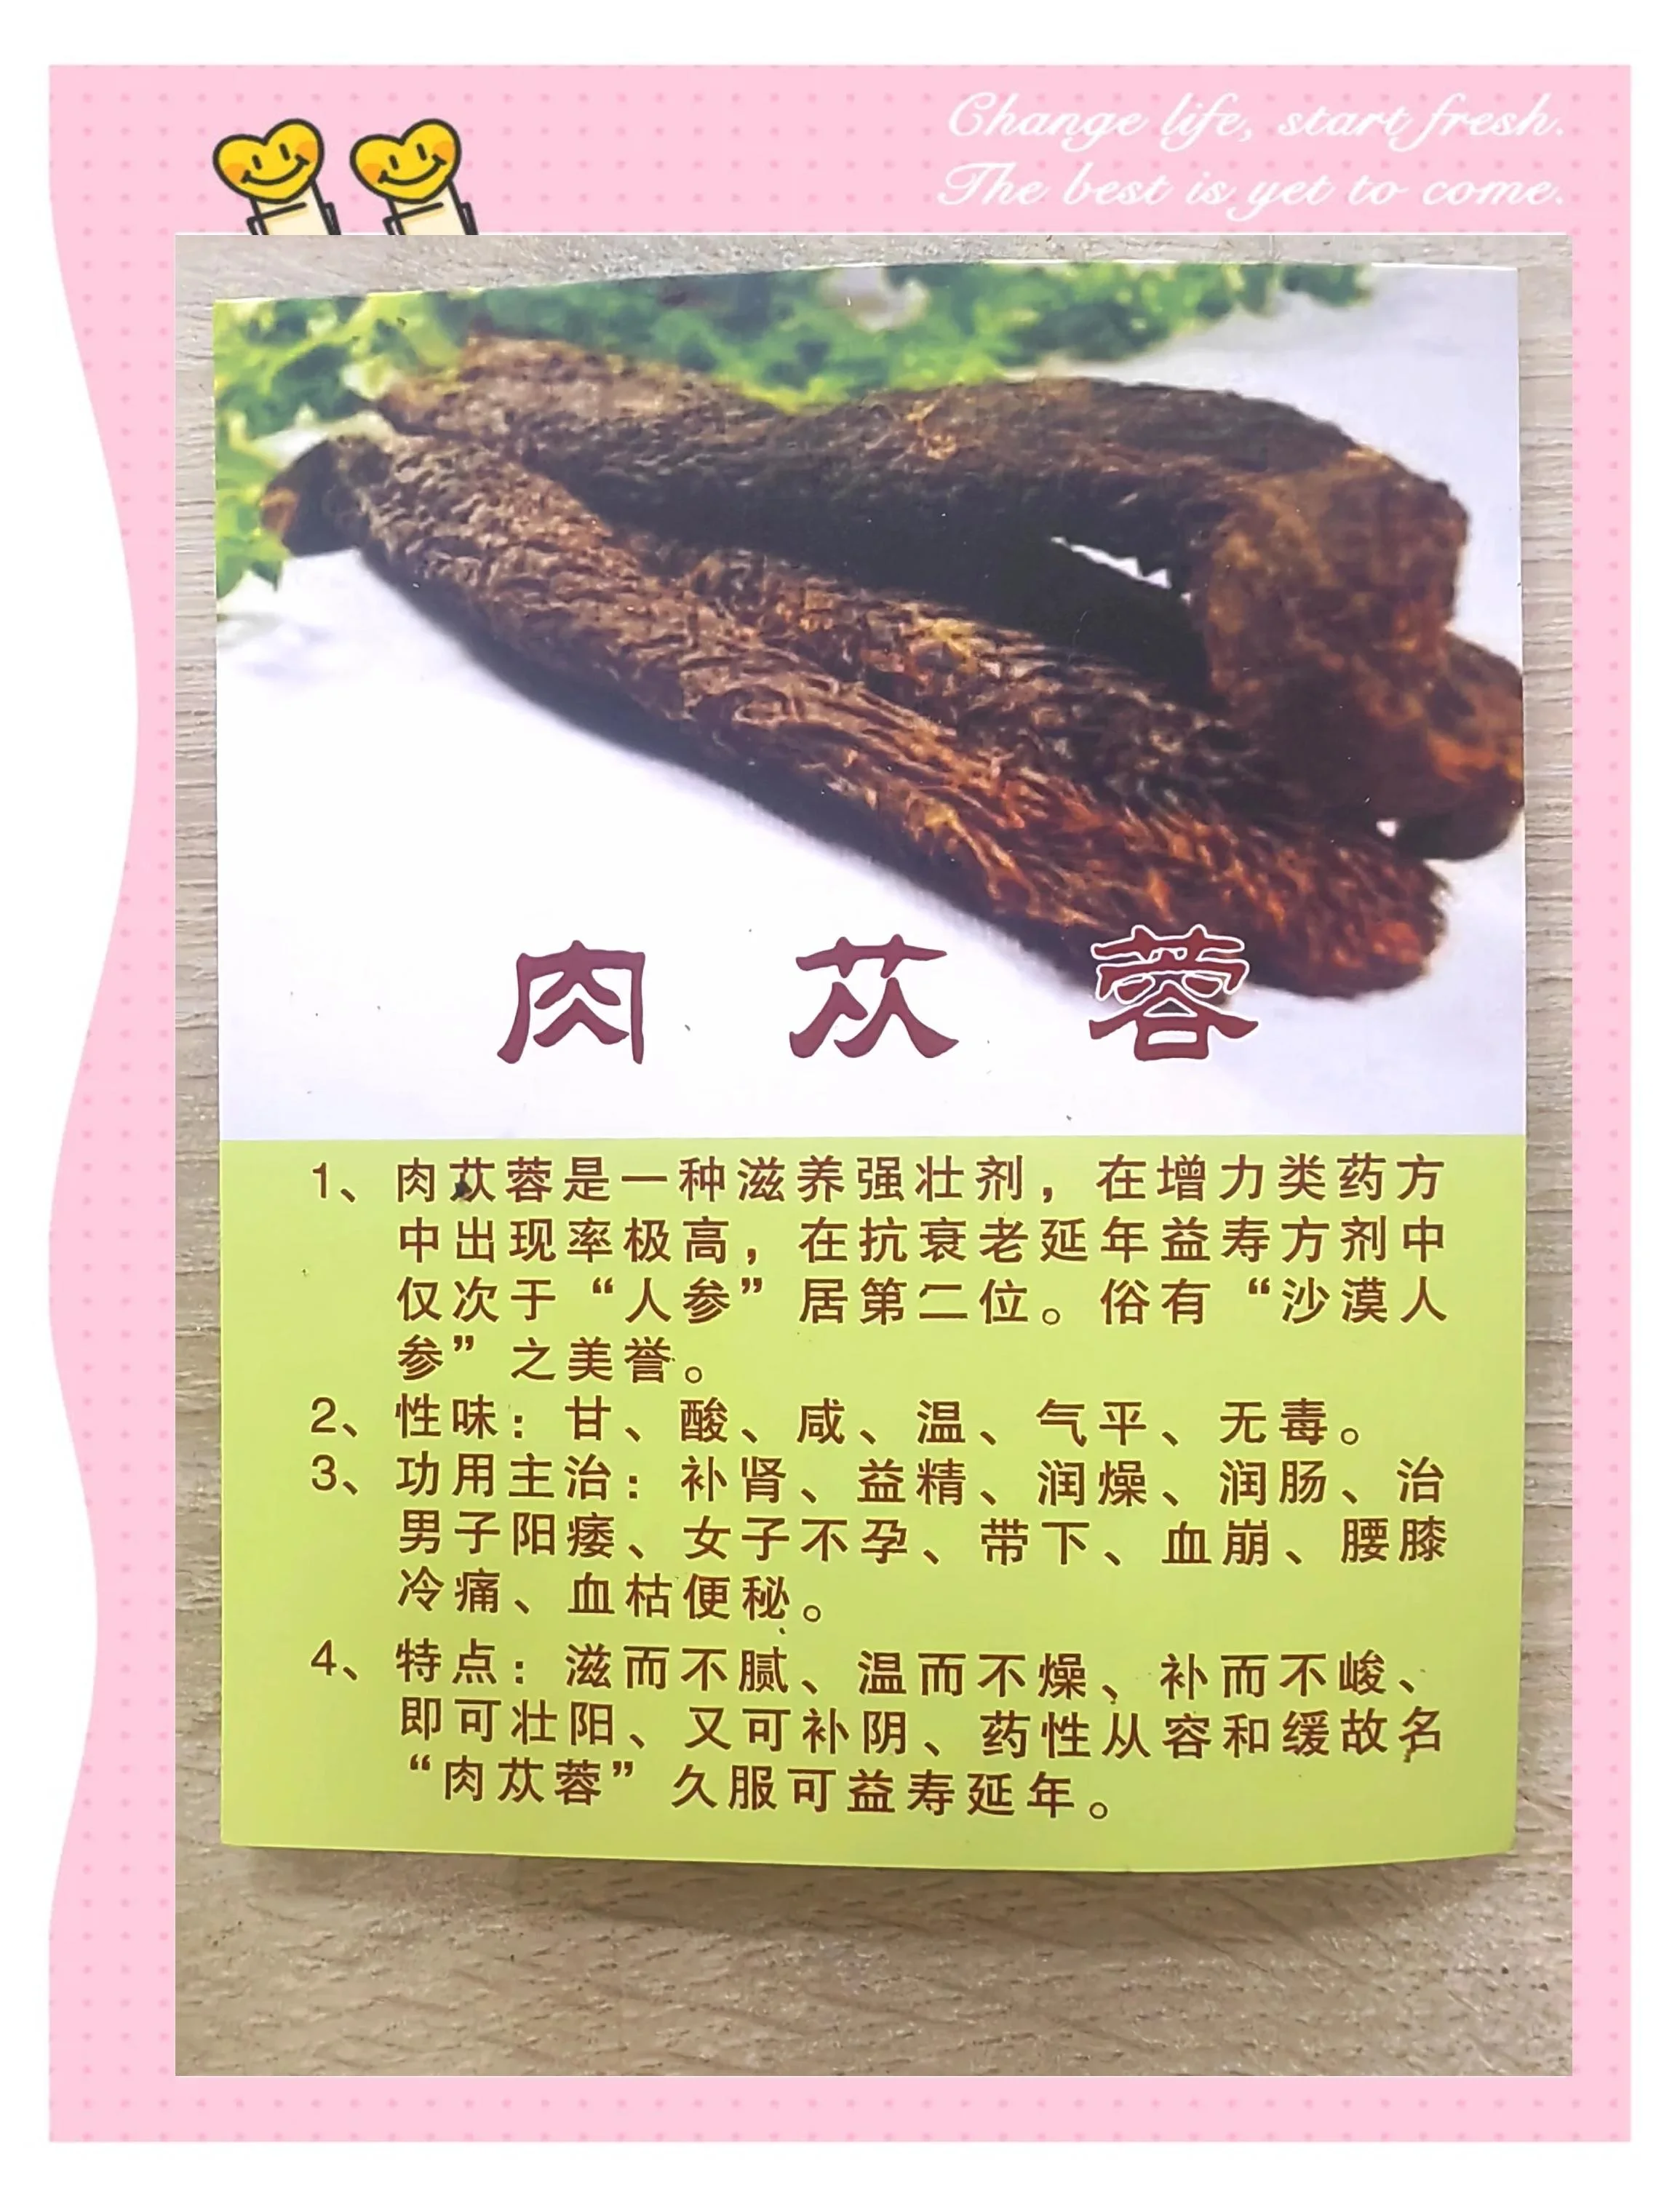 Change life, start fresh.
The best is yet to come.
肉苁蓉
1、肉苁蓉是一种滋养强壮剂，在增力类药方
中出现率极高，在抗衰老延年益寿方剂中
仅次于“人参”居第二位。俗有“沙漠人
参”之美誉。
2、性味：甘、酸、咸、温、气平、无毒。
3、功用主治：补肾、益精、润燥、润肠、治
男子阳痿、女子不孕、带下、血崩、腰膝
冷痛、血枯便秘。
4、特点：滋而不腻、温而不燥、补而不峻、
即可壮阳、又可补阴、药性从容和缓故名
“肉苁蓉”久服可益寿延年。